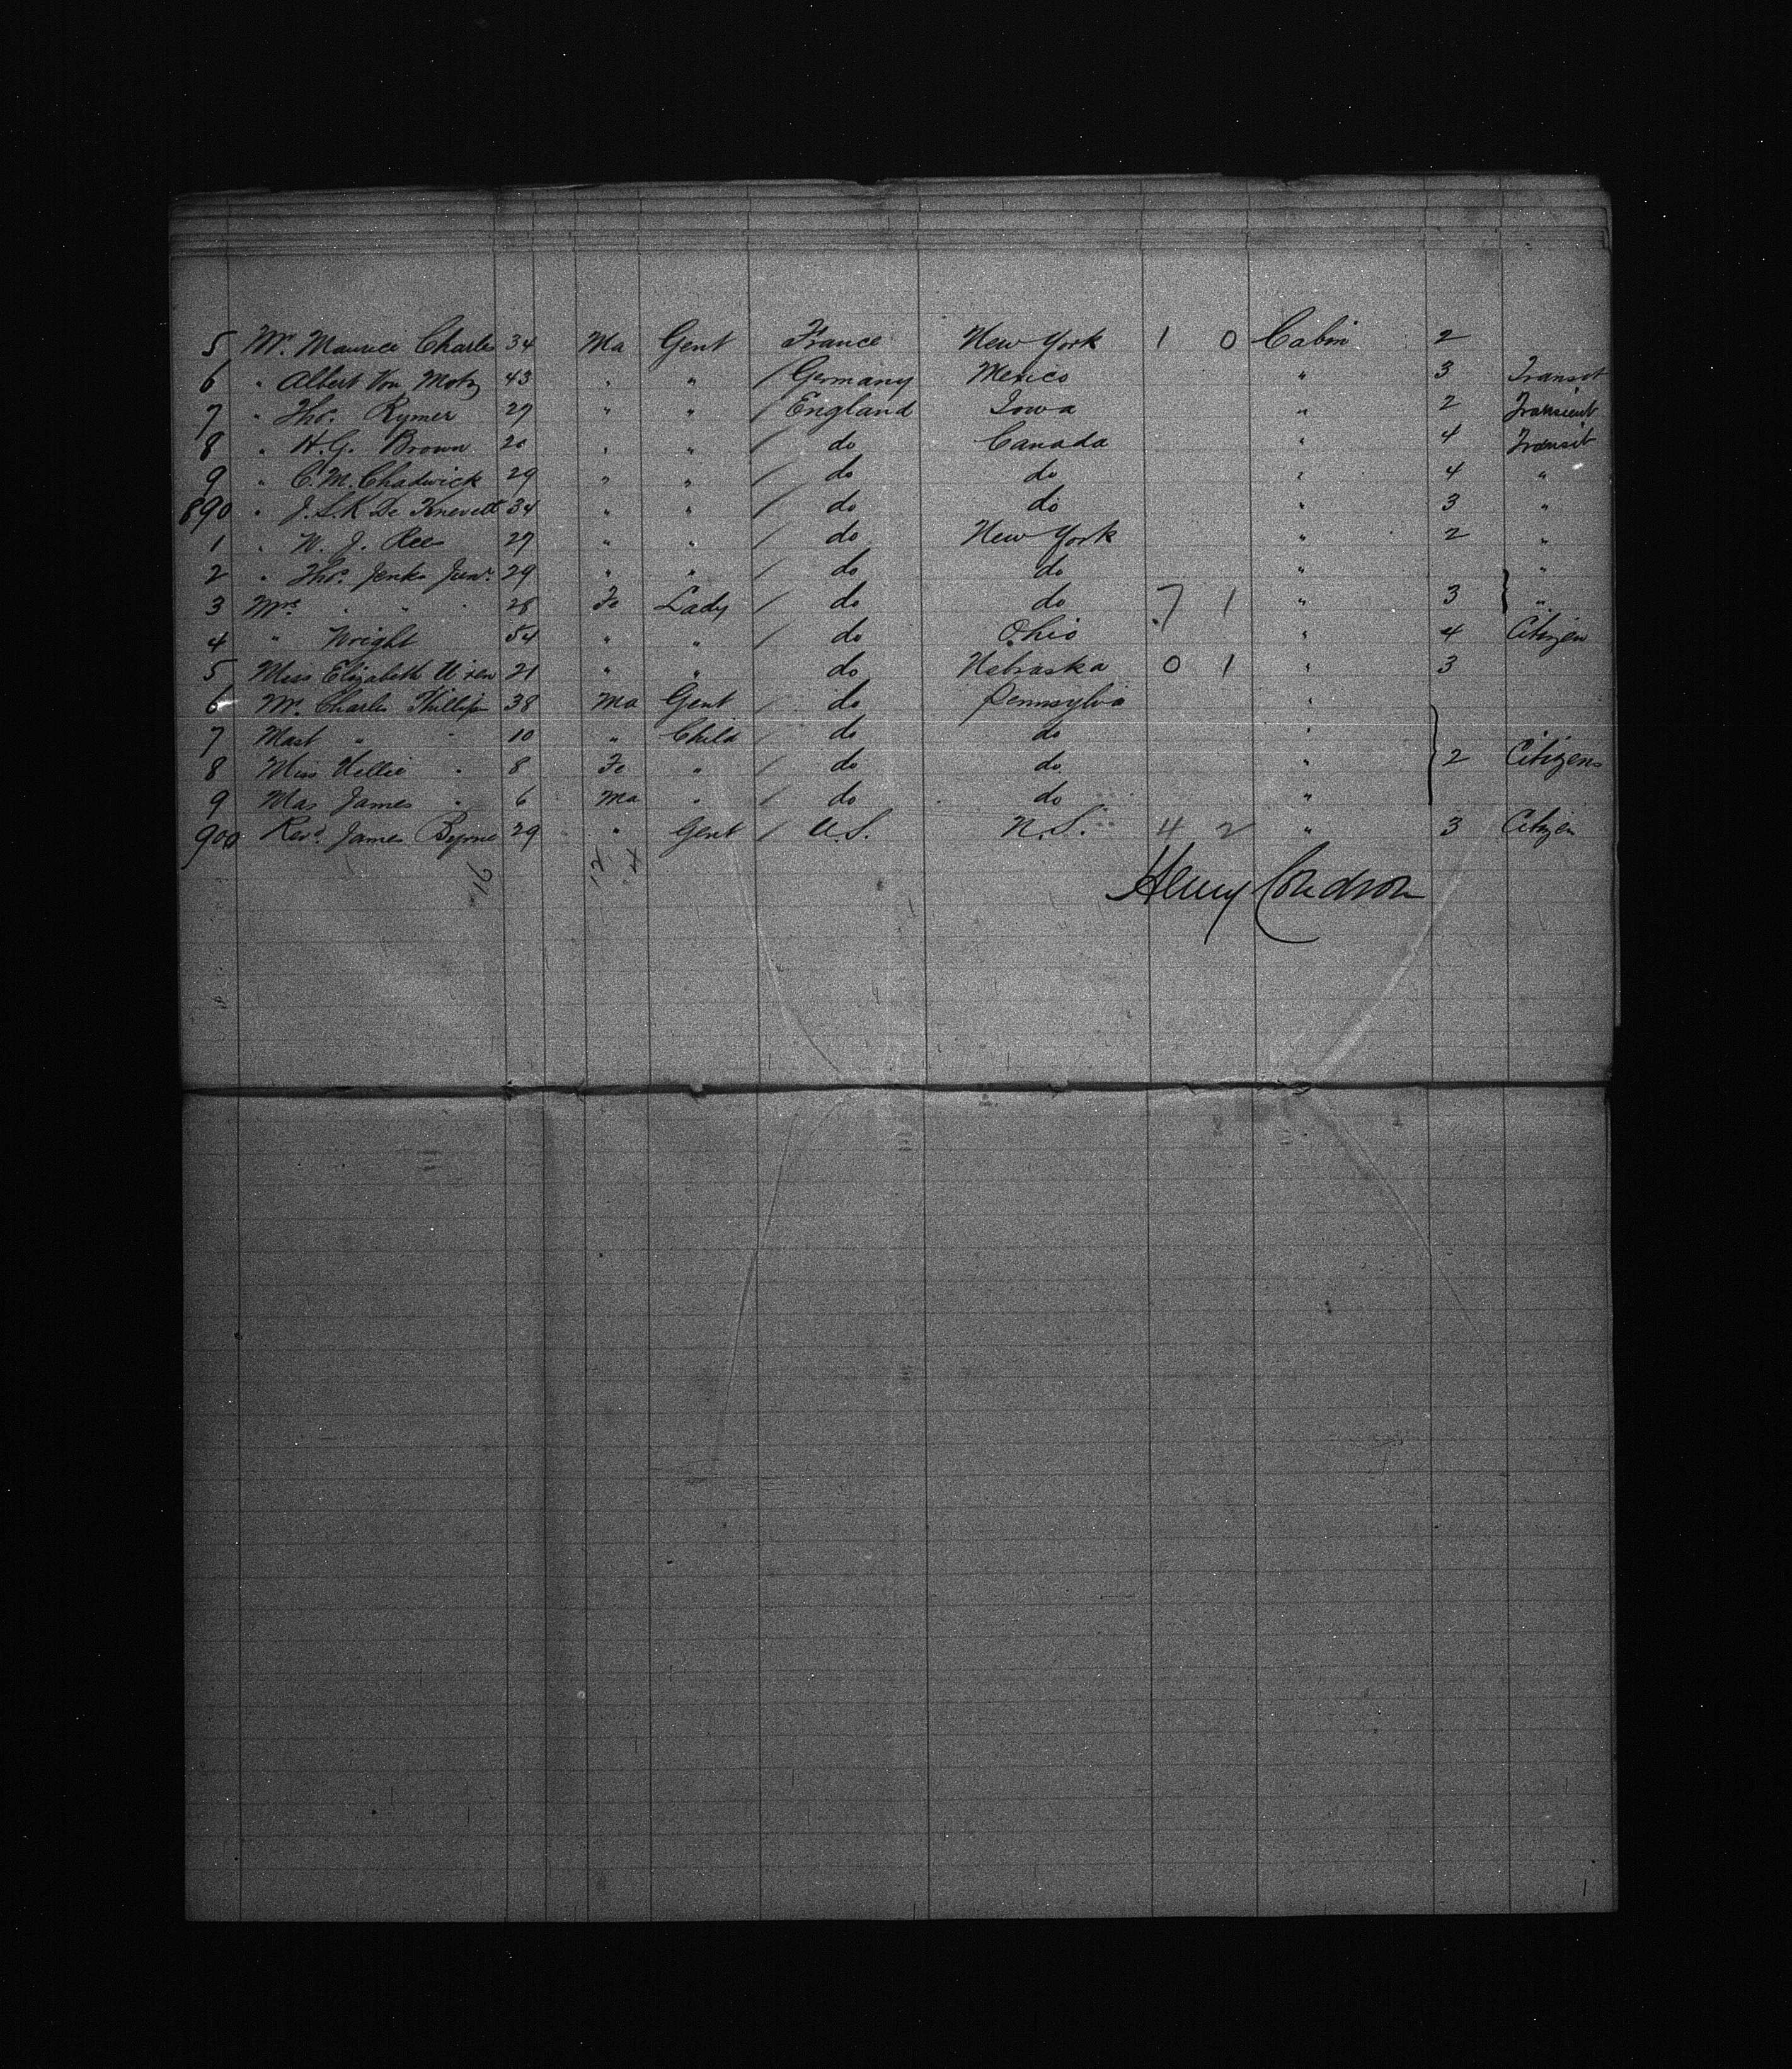 5 Mr. Maurice Charles 34 Ma Gent France New York 1 0 Cabin 2
6 " Albert Von Motz 43 " " / Germany Mexico " 3 Transit
7 " Thos. Rymer 27 " " / England Iowa " 2 Transient
8 " H.G. Brown " " / do Canada " 4 Transit
9 " C.M. Chadwick 29 " " / do do " 4 "
890 " J.S.K De Knevett 34 " " / do do " 3 "
1 " W. J. Ree 27 " " / do New York " 2 "
2 " Thos. Jenks Junr. 29 " " / do do " "
3 Mrs " " " 28 Fe Lady / do do 7 1 " 3 "
4 " Wright 54 " " / do Ohio " 4 Citizen
5 Miss Elizabeth 21 " " do Nebraska 0 1 " 3
6 Mr. Charles Phillips 38 Ma Gent / do Pennsylva "
7 Mast " " 10 " Child / do do "
8 Miss Nellie " 8 Fe " / do do " 2 Citizens
9 Mas James " 6 Ma " / do do "
900 Revd. James Byrne 29 " Gent / U.S. 4 2 " 3 Citizen
16 12 4
Henry